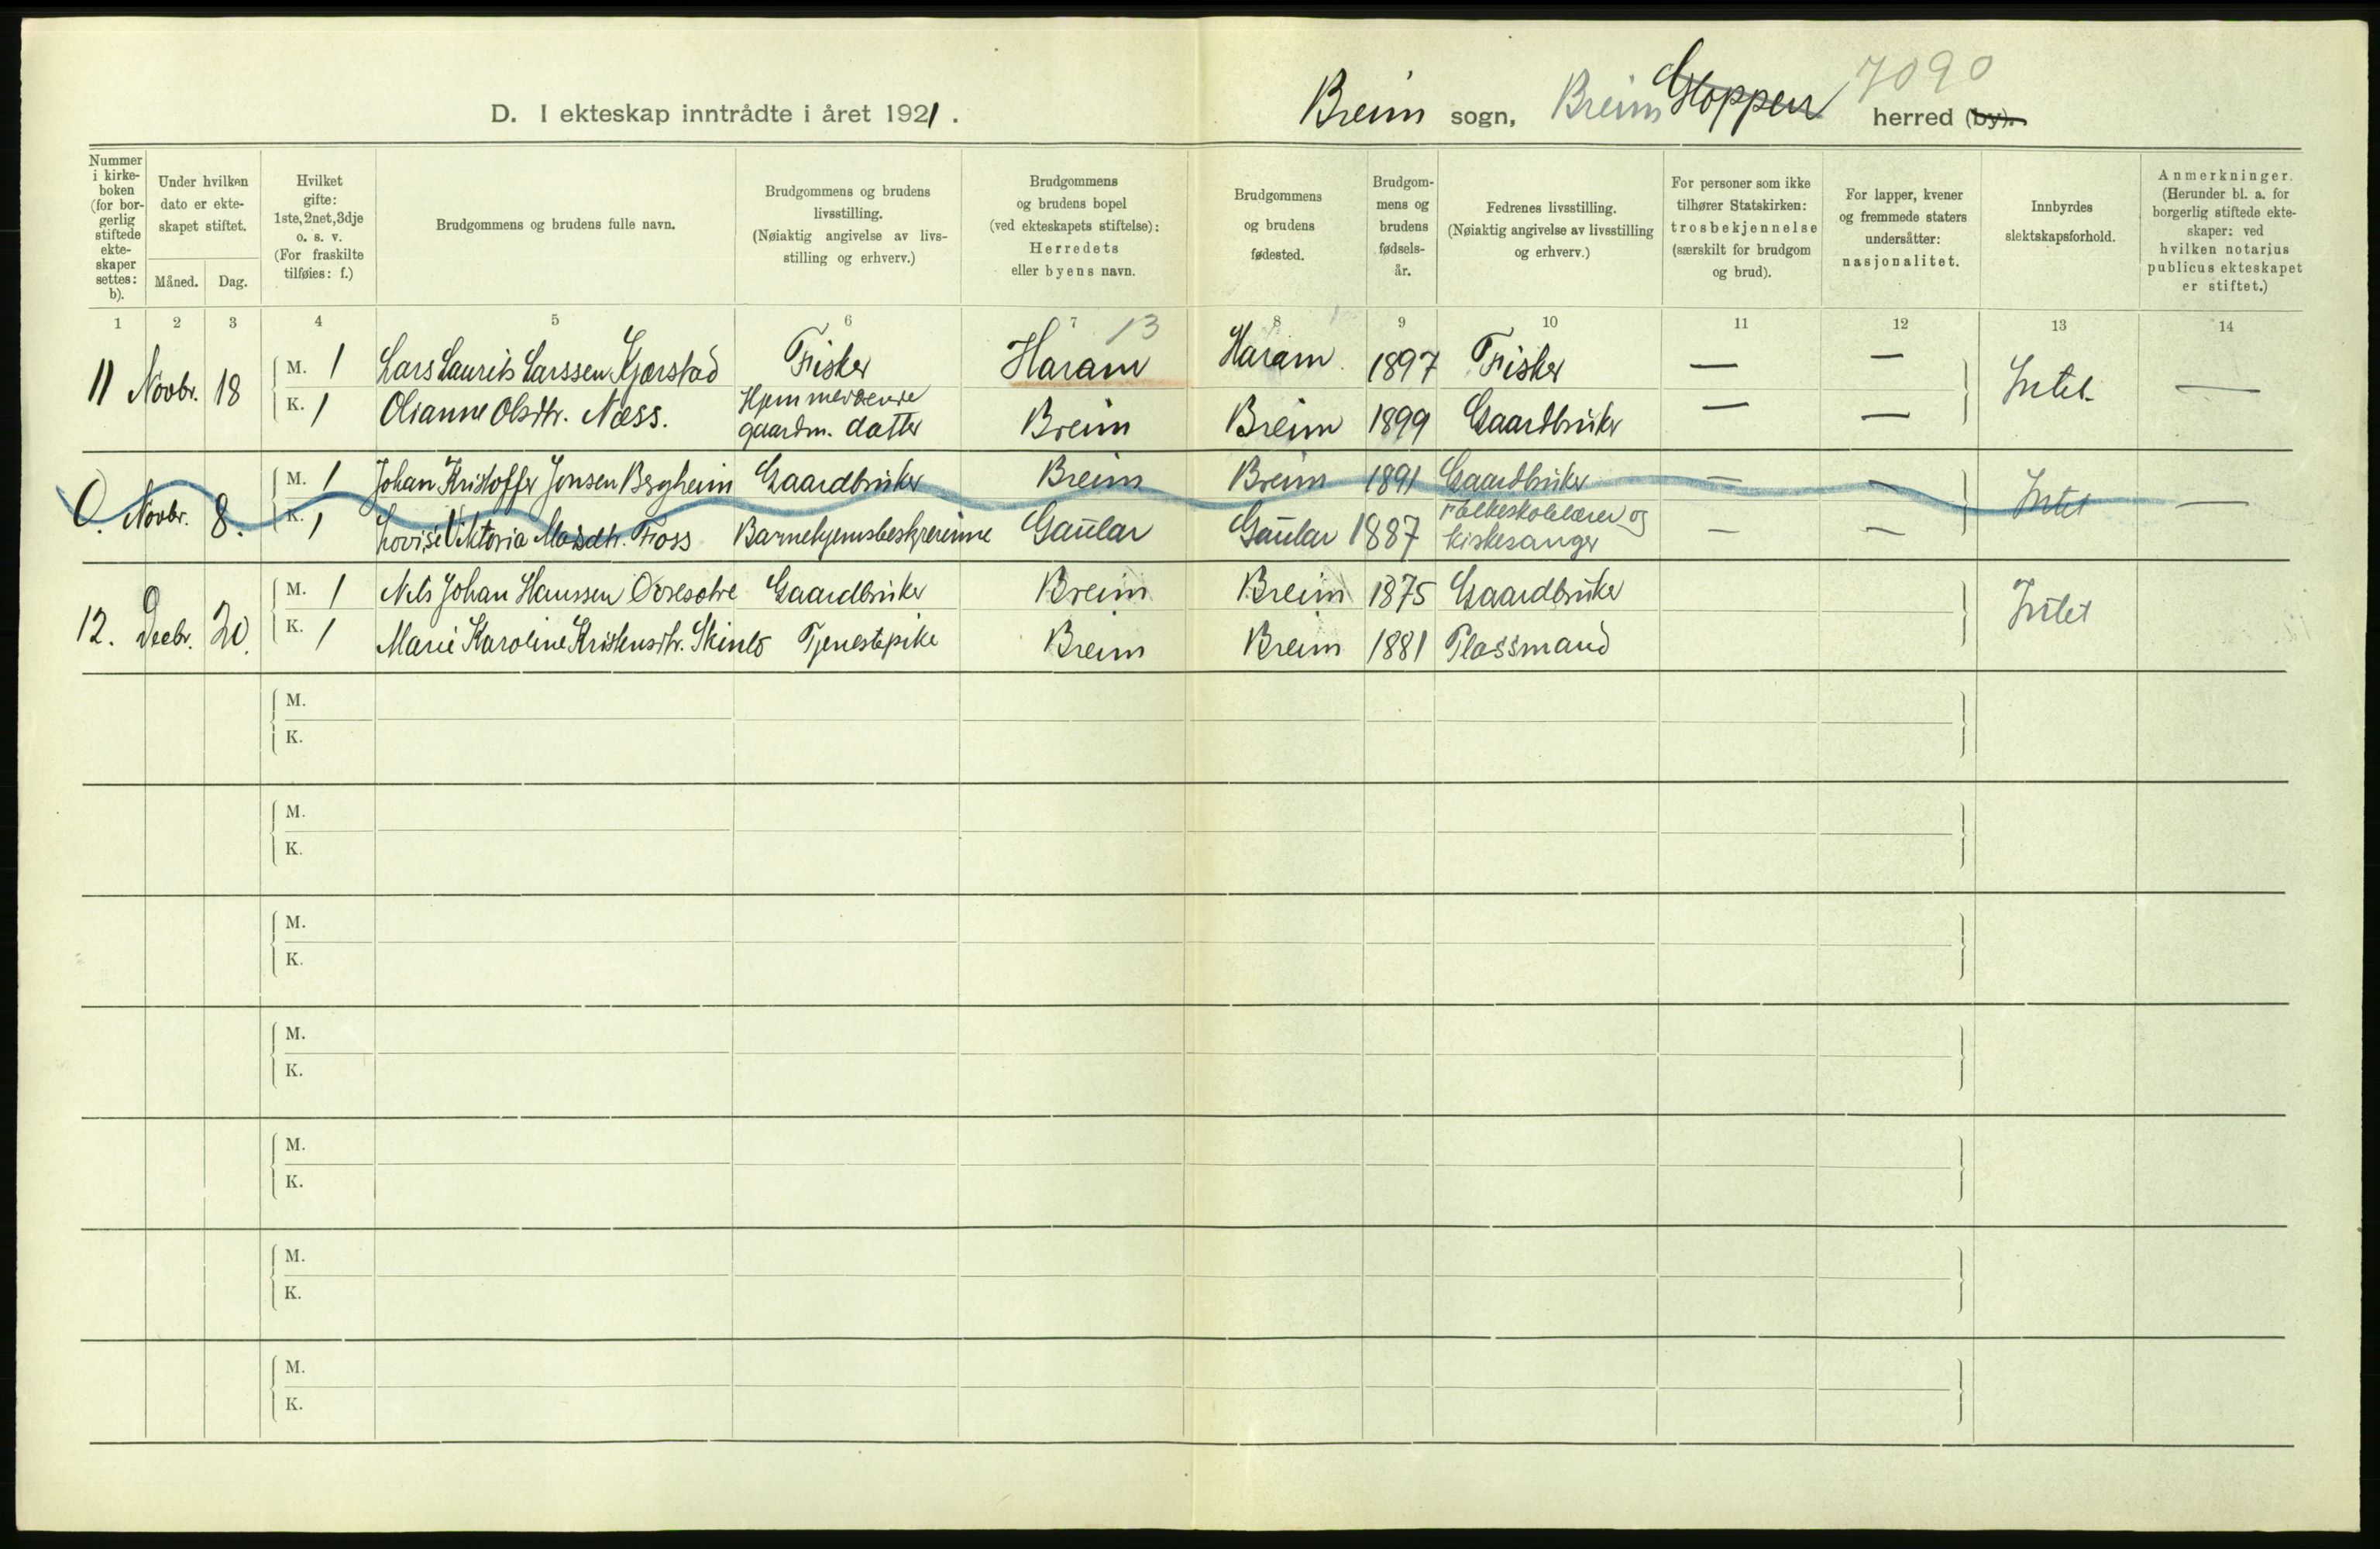 D. I ekteskap inntrådte i året 1921.
Breim sogn, Breim Gloppen herred (by). 7090
Nummer i kirke-boken (for bor-gerlig stiftede ekte-skaper settes: b).
Under hvilken dato er ekte-skapet stiftet.
Måned. Dag.
Hvilket gifte: 1ste, 2net, 3dje o. s. v. (For fraskilte tilføies: f.)
Brudgommens og brudens fulle navn.
Brudgommens og brudens livsstilling. (Nøiaktig angivelse av livs-stilling og erhverv.)
Brudgommens og brudens bopel (ved ekteskapets stiftelse): Herredets eller byens navn.
Brudgommens og brudens fødested.
Brudgom-mens og brudens fødsels-år.
Fedrenes livsstilling. (Nøiaktig angivelse av livsstilling og erhverv.)
For personer som ikke tilhører Statskirken: trosbekjennelse (særskilt for brudgom og brud).
For lapper, kvener og fremmede staters undersåtter: nasjonalitet.
Innbyrdes slektskapsforhold.
Anmerkninger. (Herunder bl. a. for borgerlig stiftede ekte-skaper: ved hvilken notarius publicus ekteskapet er stiftet.)
1 2 3 4 5 6 7 8 9 10 11 12 13 14
13
11 Novbr. 18 M. 1 Lars Laurits Larssen Gjørstad Fisker Haram Haram. 1897 Fisker — — Intet. —
K. 1 Olianne Olsdtr. Næss. Hjemmeværende gaardm. datter Breim Breim 1899 Gaardbruker — —
0. Novbr. 8. M. 1 Johan Kristoffer Jonsen Bergheim Gaardbruker Breim Breim 1891 Gaardbruker — — Intet —
K. 1 Lovise Viktoria Madsdtr. Fross Barnehjemsbestyrerinne Gaular Gaular 1887 Folkeskolelærer og kirkesanger — —
12. Decbr. 20. M. 1 Nils Johan Hanssen Øvresøtre Gaardbruker Breim Breim 1875 Gaardbruker Intet
K. 1 Marie Karoline Kristensdtr. Skinlo Tjenestepike Breim Breim 1881 Plassmand
M.
K.
M.
K.
M.
K.
M.
K.
M.
K.
M.
K.
M.
K.